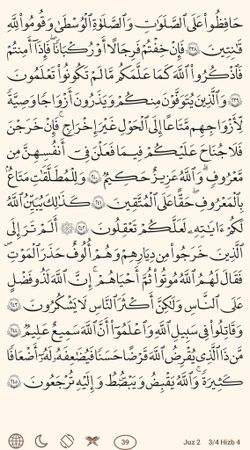 حَافِظُوا۟ عَلَى ٱلصَّلَوَٰتِ وَٱلصَّلَوٰةِ ٱلْوُسْطَىٰ وَقُومُوا۟ لِلَّهِ
قَٰنِتِينَ ٢٣٨ فَإِنْ خِفْتُمْ فَرِجَالًا أَوْ رُكْبَانًا ۖ فَإِذَآ أَمِنتُمْ
فَٱذْكُرُوا۟ ٱللَّهَ كَمَا عَلَّمَكُم مَّا لَمْ تَكُونُوا۟ تَعْلَمُونَ
٢٣٩ وَٱلَّذِينَ يُتَوَفَّوْنَ مِنكُمْ وَيَذَرُونَ أَزْوَٰجًا وَصِيَّةً
لِّأَزْوَٰجِهِم مَّتَٰعًا إِلَى ٱلْحَوْلِ غَيْرَ إِخْرَاجٍ ۚ فَإِنْ خَرَجْنَ
فَلَا جُنَاحَ عَلَيْكُمْ فِى مَا فَعَلْنَ فِىٓ أَنفُسِهِنَّ مِن
مَّعْرُوفٍ ۗ وَٱللَّهُ عَزِيزٌ حَكِيمٌ ٢٤٠ وَلِلْمُطَلَّقَٰتِ مَتَٰعٌۢ
بِٱلْمَعْرُوفِ ۖ حَقًّا عَلَى ٱلْمُتَّقِينَ ٢٤١ كَذَٰلِكَ يُبَيِّنُ ٱللَّهُ
لَكُمْ ءَايَٰتِهِۦ لَعَلَّكُمْ تَعْقِلُونَ ٢٤٢ ۞ أَلَمْ تَرَ إِلَى
ٱلَّذِينَ خَرَجُوا۟ مِن دِيَٰرِهِمْ وَهُمْ أُلُوفٌ حَذَرَ ٱلْمَوْتِ
فَقَالَ لَهُمُ ٱللَّهُ مُوتُوا۟ ثُمَّ أَحْيَٰهُمْ ۚ إِنَّ ٱللَّهَ لَذُو فَضْلٍ
عَلَى ٱلنَّاسِ وَلَٰكِنَّ أَكْثَرَ ٱلنَّاسِ لَا يَشْكُرُونَ ٢٤٣
وَقَٰتِلُوا۟ فِى سَبِيلِ ٱللَّهِ وَٱعْلَمُوٓا۟ أَنَّ ٱللَّهَ سَمِيعٌ عَلِيمٌ ٢٤٤
مَّن ذَا ٱلَّذِى يُقْرِضُ ٱللَّهَ قَرْضًا حَسَنًا فَيُضَٰعِفَهُۥ لَهُۥٓ أَضْعَافًا
كَثِيرَةً ۚ وَٱللَّهُ يَقْبِضُ وَيَبْصُۜطُ وَإِلَيْهِ تُرْجَعُونَ ٢٤٥
39 Juz 2 3/4 Hizb 4